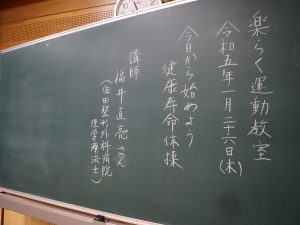 楽らく運動教室
令和五年一月二十六日(木)
今日から始めよう
健康寿命体操
講師
福井直亮さん
(佐田整形外科病院
理学療法士)